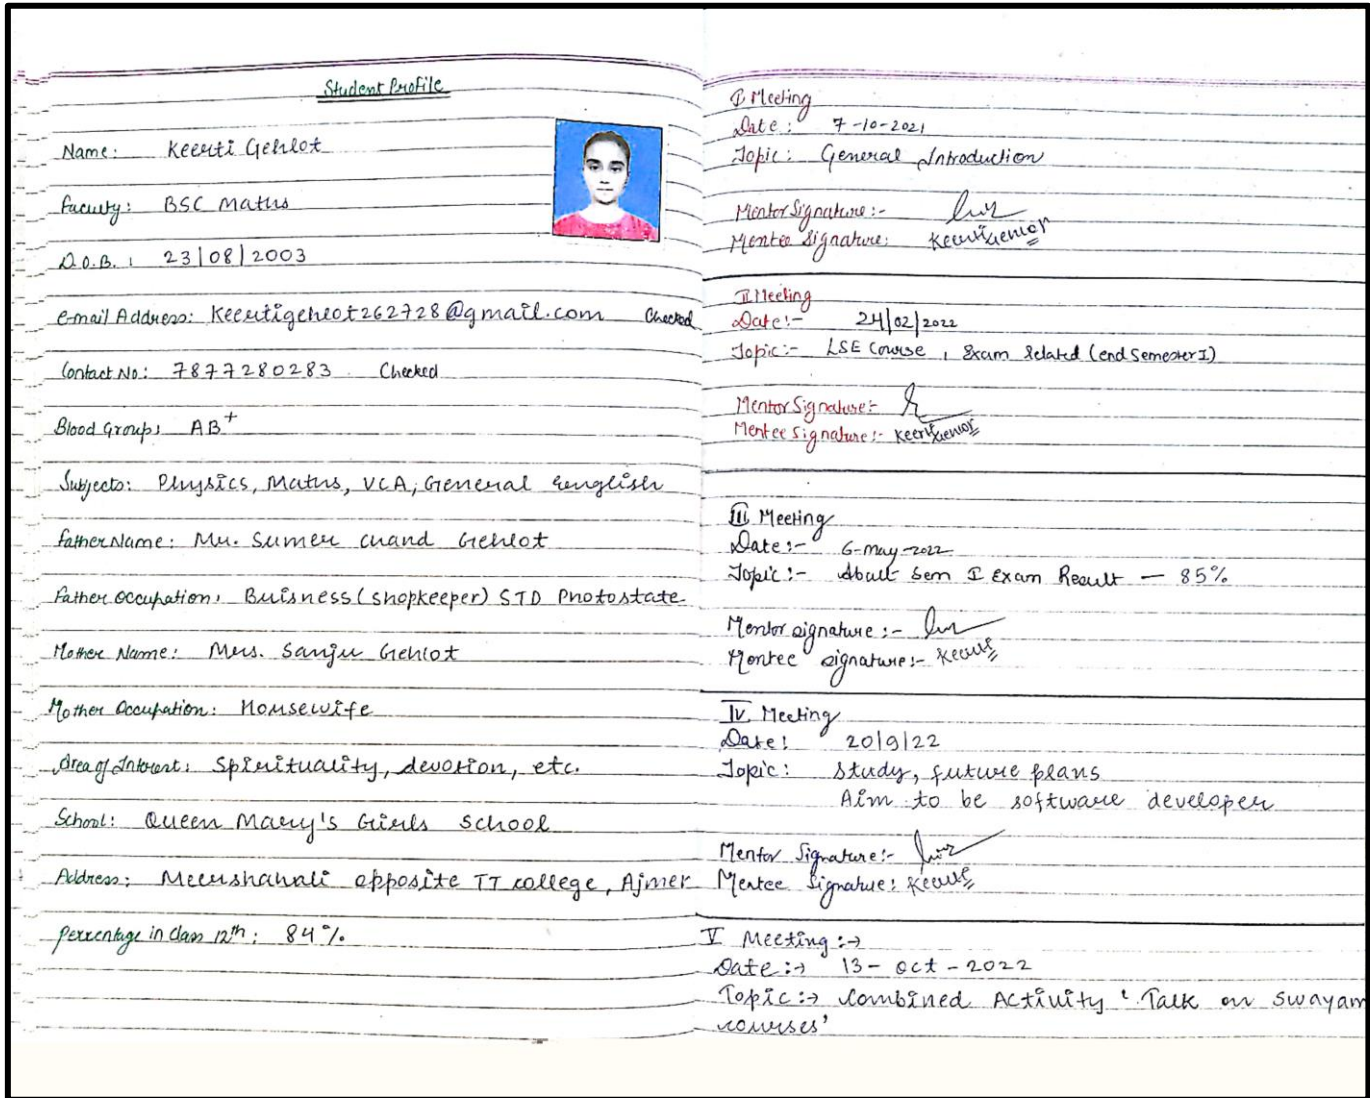 Student Profile
Name: Keerti Gehlot
Faculty: BSC Maths
D.O.B. : 23/08/2003
e-mail Address: Keertigehlot262728@gmail.com Checked
Contact No: 7877280283 Checked
Blood Group: AB+
Subjects: Physics, Maths, VCA, General English
Father Name: Mr. Sumer Chand Gehlot
Father Occupation: Buisness (shopkeeper) STD Photostate
Mother Name: Mrs. Sanju Gehlot
Mother Occupation: Housewife
Area of Interest: Spirituality, devotion, etc.
School: Queen Mary's Girls School
Address: Meershahali opposite TT college, Ajmer
Percentage in class 12th: 84%
I Meeting
Date: 7-10-2021
Topic: General Introduction
Mentor Signature:-
Mentee Signature: Keerti
II Meeting
Date:- 24/02/2022
Topic:- LSE Course, Exam Related (end Semester I)
Mentor Signature:-
Mentee Signature:- Keerti
III Meeting
Date:- 6-May-2022
Topic:- About Sem I Exam Result — 85%
Mentor signature:-
Mentee signature:- Keerti
IV Meeting
Date: 20/9/22
Topic: Study, future plans
Aim to be software developer
Mentor Signature:-
Mentee Signature: Keerti
V Meeting :→
Date :→ 13-Oct-2022
Topic :→ Combined Activity 'Talk on Swayam
courses'